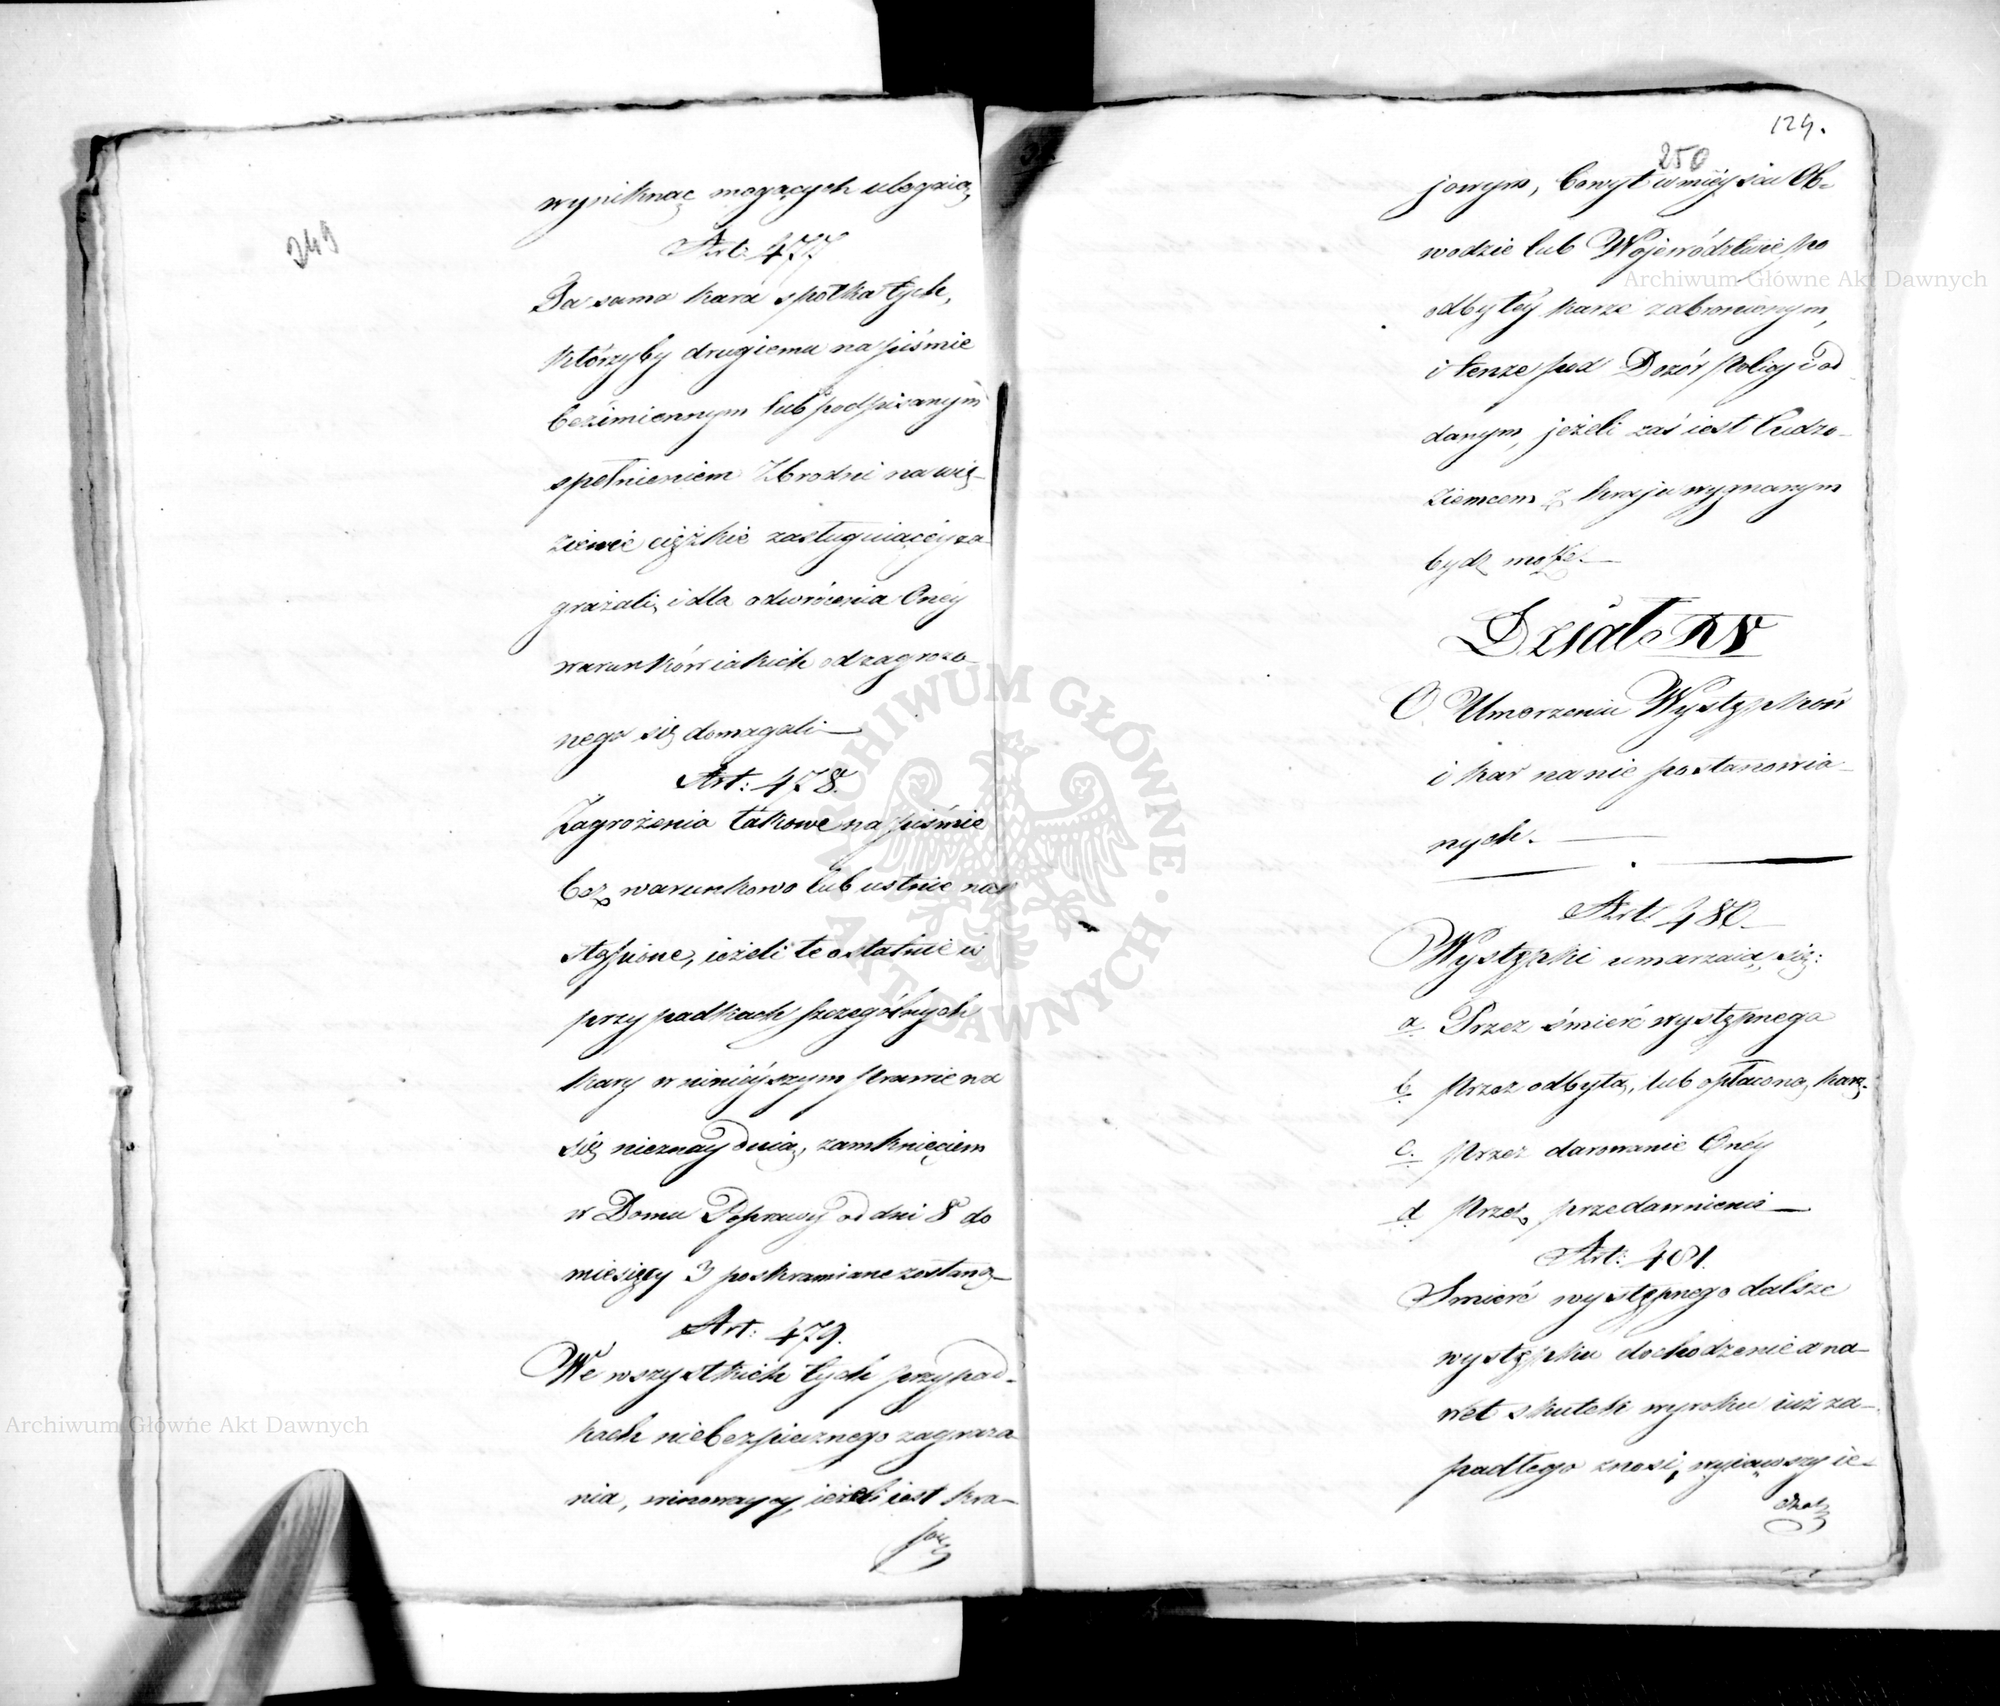 249
wyniknąć mogących ulegnią
Art: 477
Ta sama kara spotka tych,
którzyby drugiemu na piśmie
bezimiennym lub podpisanym
spełnieniem Zbrodni na wię-
zienie ciężkie zasługuiącey za-
grażali, i dla odwrócenia Oney
warunków iakich od zagrożo-
nego się domagali
Art: 478.
Zagrożenia takowe na piśmie
bez warunkowo lub ustnie na-
stąpione, ieżeli te ostatnie w
przypadkach szczególnych
kary w ninieyszym Prawie na
się nieznaydnią, zamknięciem
w Domu Poprawy od dni 8 do
miesięcy 3 poskramiane zostaną
Art: 479.
We wszystkich tych przypad-
kach niebezpiecznego zagraża-
nia, winowaycy, ieżeli iest kra-
jow
129.
250
jowym, bowyt w mieyscu Ob-
wodzie lub Województwie po
odbytey karze zabronionym,
i tenże pod Dozór Policyi od-
danym, jeżeli zaś iest Cudzo-
ziemcem z kraju wygnanym
bydź może.
Dział XV
O Umorzeniu Występków
i kar na nie postanowio-
nych.
Art: 480.
Występki umarzaią się:
a. Przez śmierć występnego
b. Przez odbytą, lub opłaconą karę.
c. Przez darowanie Oney
d. Przez przedawnienie
Art: 481.
Smierć występnego dalsze
występku dochodzenie a na-
wet skutek wyroku iuż za-
padłego znosi, wyiąwszy ie-
dnak
Archiwum Główne Akt Dawnych
Archiwum Główne Akt Dawnych
ARCHIWUM GŁÓWNE · AKT DAWNYCH ·